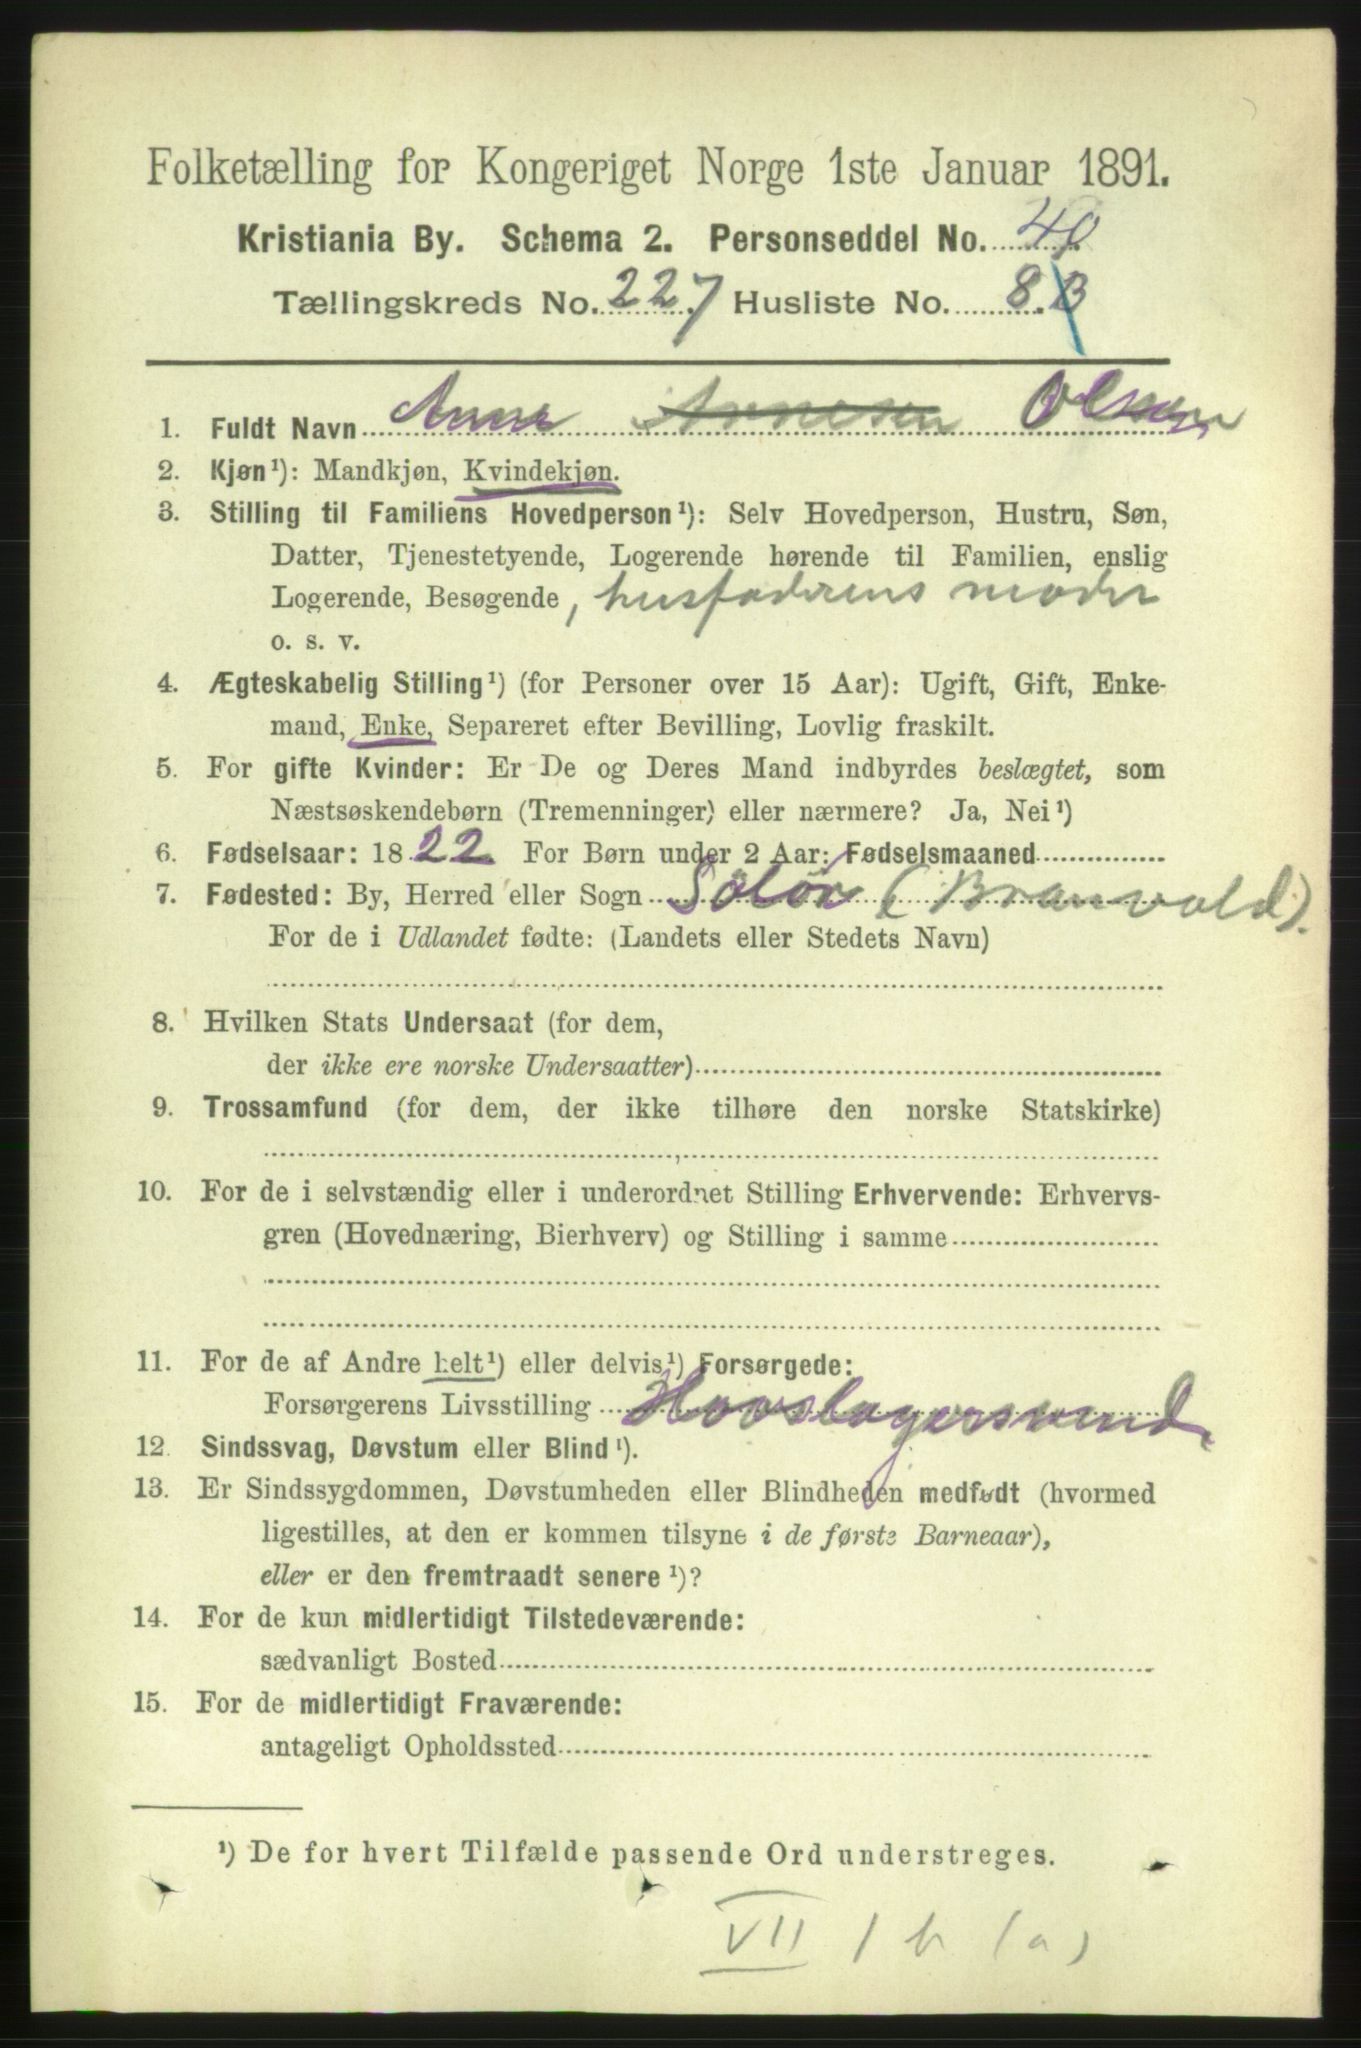 Folketælling for Kongeriget Norge 1ste Januar 1891.
Kristiania By. Schema 2. Personseddel No. 49
Tællingskreds No. 227 Husliste No. 8.B
1. Fuldt Navn Anne Arnesen Olsen
2. Kjøn¹): Mandkjøn, Kvindekjøn.
3. Stilling til Familiens Hovedperson¹): Selv Hovedperson, Hustru, Søn,
Datter, Tjenestetyende, Logerende hørende til Familien, enslig
Logerende, Besøgende, husfaderens moder
o. s. v.
4. Ægteskabelig Stilling¹) (for Personer over 15 Aar): Ugift, Gift, Enke-
mand, Enke, Separeret efter Bevilling, Lovlig fraskilt.
5. For gifte Kvinder: Er De og Deres Mand indbyrdes beslægtet, som
Næstsøskendebørn (Tremenninger) eller nærmere? Ja, Nei¹)
6. Fødselsaar: 1822 For Børn under 2 Aar: Fødselsmaaned
7. Fødested: By, Herred eller Sogn Solør (Branvold).
For de i Udlandet fødte: (Landets eller Stedets Navn)
8. Hvilken Stats Undersaat (for dem,
der ikke ere norske Undersaatter)
9. Trossamfund (for dem, der ikke tilhøre den norske Statskirke)
10. For de i selvstændig eller i underordnet Stilling Erhvervende: Erhvervs-
gren (Hovednæring, Bierhverv) og Stilling i samme
11. For de af Andre helt¹) eller delvis¹) Forsørgede:
Forsørgerens Livsstilling Hovslagersvend.
12. Sindssvag, Døvstum eller Blind¹).
13. Er Sindssygdommen, Døvstumheden eller Blindheden medfødt (hvormed
ligestilles, at den er kommen tilsyne i de første Barneaar),
eller er den fremtraadt senere¹)?
14. For de kun midlertidigt Tilstedeværende:
sædvanligt Bosted
15. For de midlertidigt Fraværende:
antageligt Opholdssted
¹) De for hvert Tilfælde passende Ord understreges.
VII / b (a)